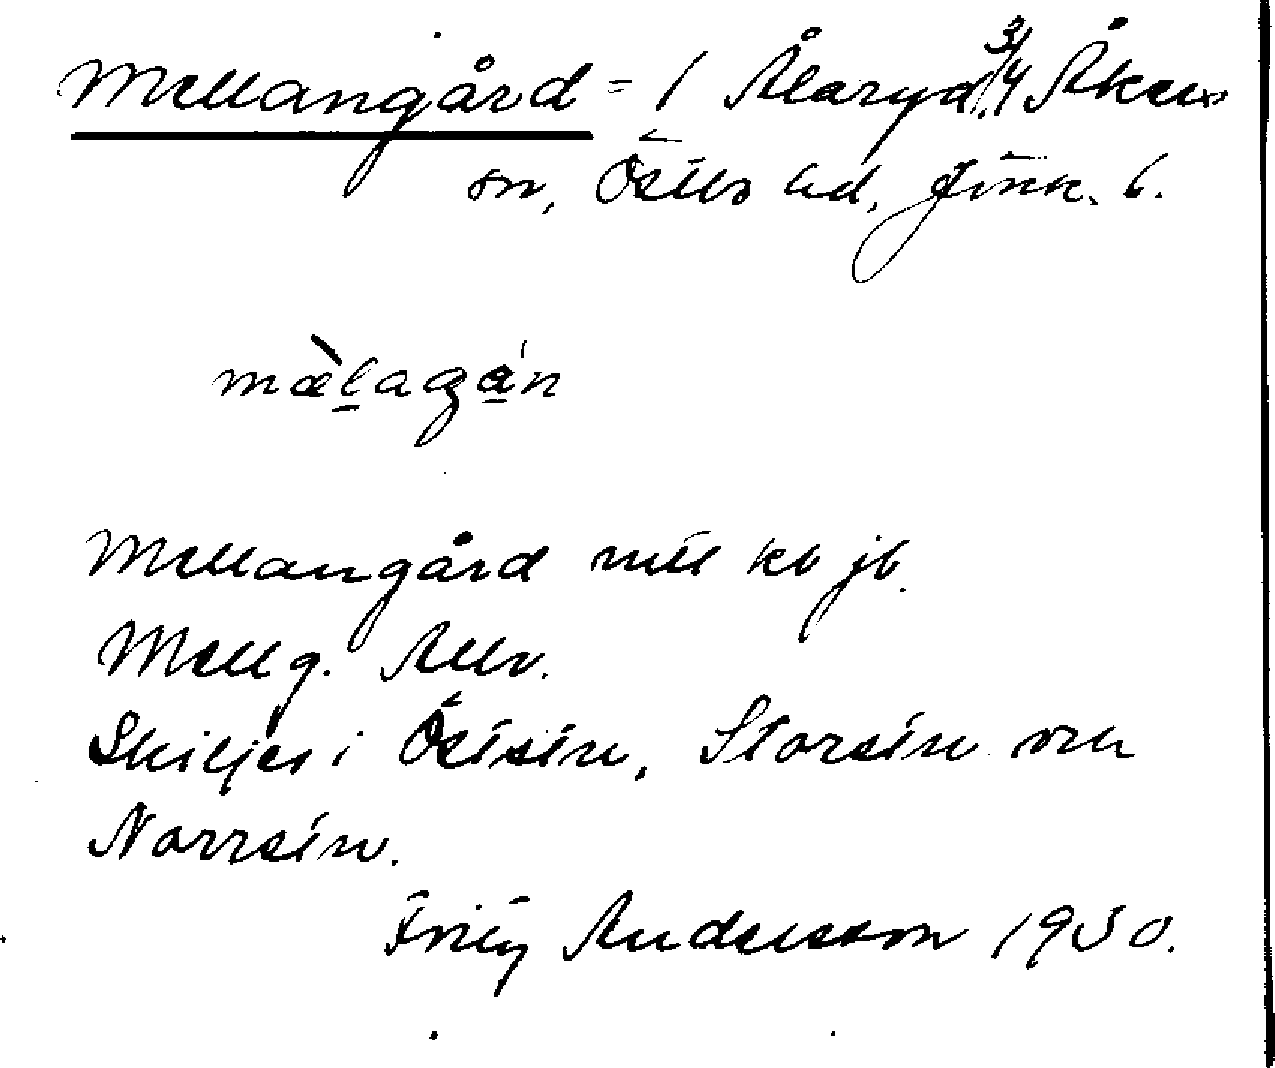 Mellangård = 1 Ålarya, 3/4 Åkers
sn, Östbo hd, Jönk. l.
mælagan
Mellangård mtl kb jb.
Mellg. Allv.
Skiljes i Östsin, Storsin och
Norrsin.
Fritz Andersson 1930.